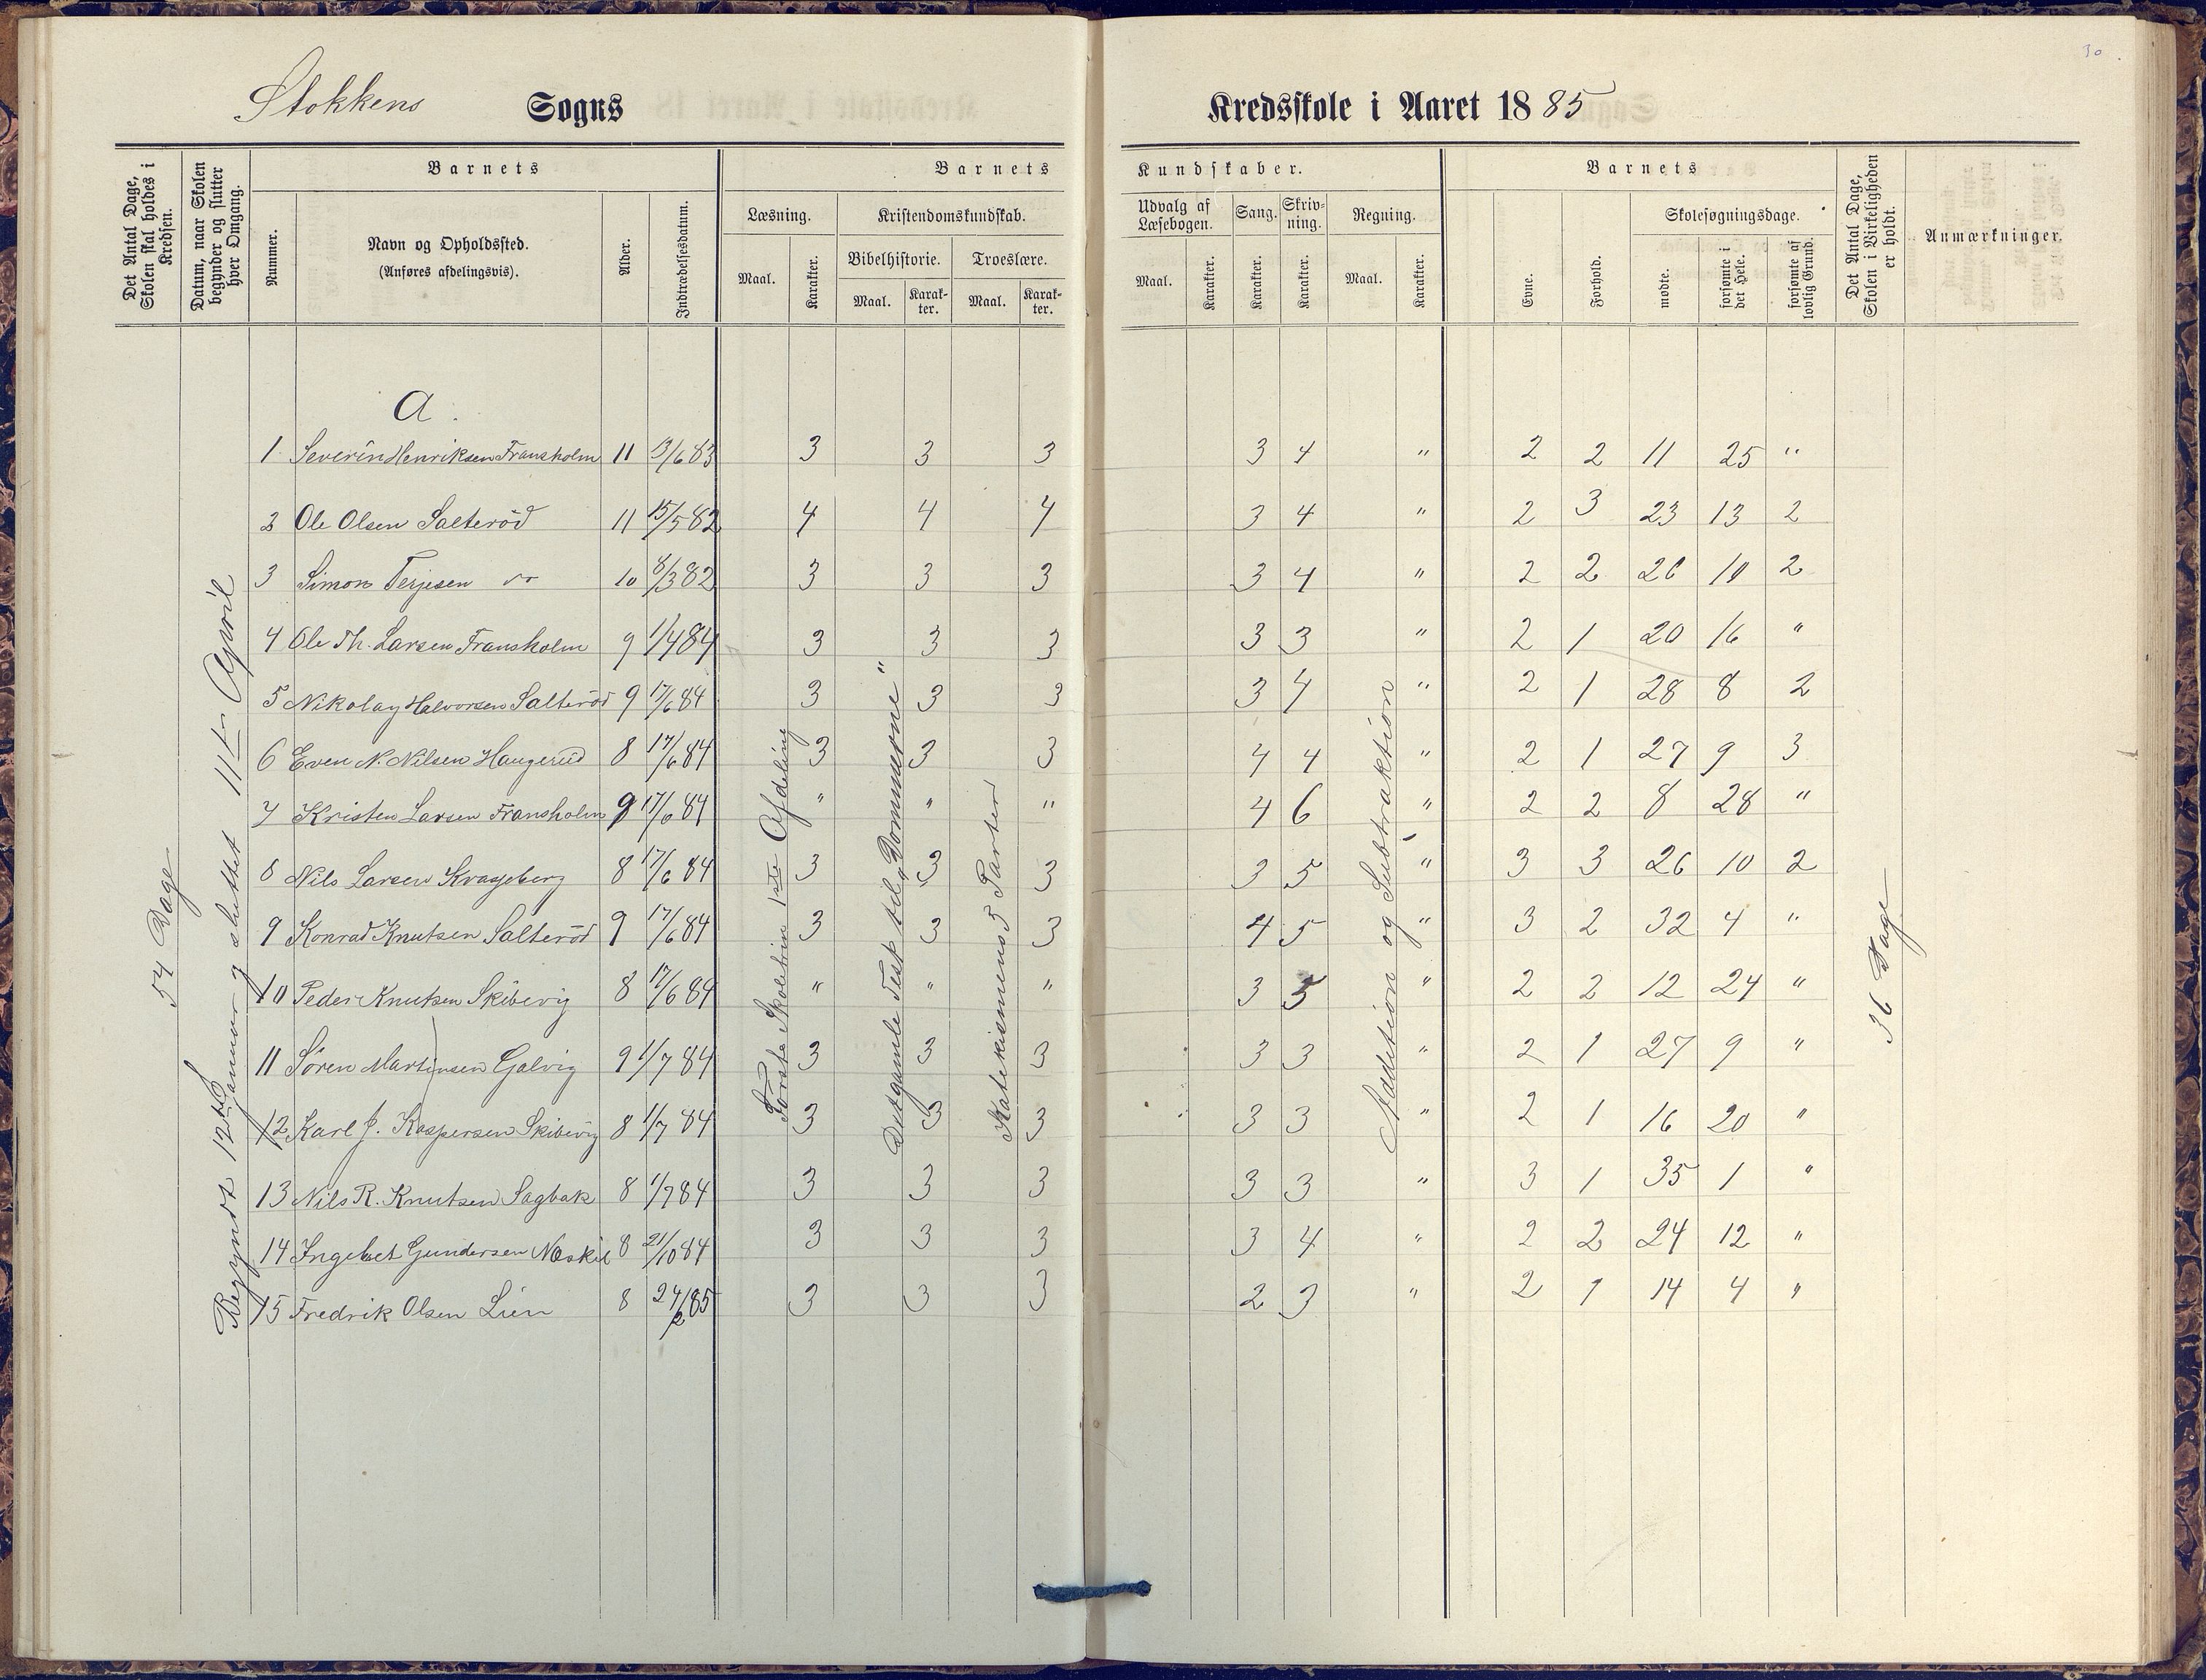 30
Stokkens Sogns Kredsskole i Aaret 1885
Det Antal Dage, Skolen skal holdes i Kredsen.
Datum, naar Skolen begynder og slutter hver Omgang.
Barnets
Nummer.
Navn og Opholdssted.
(Anføres afdelingsvis).
Alder.
Indtrædelsesdatum.
Barnets Kundskaber.
Læsning.
Maal. Karakter.
Kristendomskundskab.
Bibelhistorie. Troeslære.
Maal. Karakter. Maal. Karakter.
Udvalg af Læsebogen.
Maal. Karakter.
Sang.
Karakter.
Skrivning.
Karakter.
Regning.
Maal. Karakter.
Barnets
Evne. Forhold.
Skolesøgningsdage.
mødte. forsømte i det Hele. forsømte af lovlig Grund.
Det Antal Dage, Skolen i Virkeligheden er holdt.
Anmærkninger.
54 Dage
Begyndt 12te Januar og sluttet 11te April
Første Skoletrin 1ste Afdeling
Det gamle Test til "Dommerne"
Katekismens 5 Parter
Addition og Subtraktion
36 Dage
A.
1 Severin Henriksen Fransholm 11 13/6 83 3 3 3 3 4 " 2 2 11 25 "
2 Ole Olsen Salterød 11 15/5 82 4 4 4 3 4 " 2 3 23 13 2
3 Simon Terjesen do 10 8/3 82 3 3 3 3 4 " 2 2 26 10 2
4 Ole Th. Larsen Fransholm 9 1/4 84 3 3 3 3 3 " 2 1 20 16 "
5 Nikolay Halvorsen Salterød 9 17/6 84 3 3 3 3 4 " 2 1 28 8 2
6 Even N. Nilsen Haugerud 8 17/6 84 3 3 3 4 4 " 2 1 27 9 3
7 Kristen Larsen Fransholm 9 17/6 84 " " " 4 6 " 2 2 8 28 "
8 Nils Larsen Kvasjeberg 8 17/6 84 3 3 3 3 5 " 3 3 26 10 2
9 Konrad Knutsen Salterød 9 17/6 84 3 3 3 4 5 " 3 2 32 4 "
10 Peder Knutsen Skibevig 8 17/6 84 " " " 3 5 " 2 2 12 24 "
11 Søren Martinsen Galvig 9 1/7 84 3 3 3 3 3 " 2 1 27 9 "
12 Karl J. Kaspersen Skibevig 8 1/7 84 3 3 3 3 3 " 2 1 16 20 "
13 Nils R. Knutsen Sagbak 8 1/7 84 3 3 3 3 3 " 3 1 35 1 "
14 Ingebret Gundersen Næskil 8 21/10 84 3 3 3 3 4 " 2 2 24 12 "
15 Fredrik Olsen Lien 8 24/2 85 3 3 3 2 3 " 2 1 14 4 "